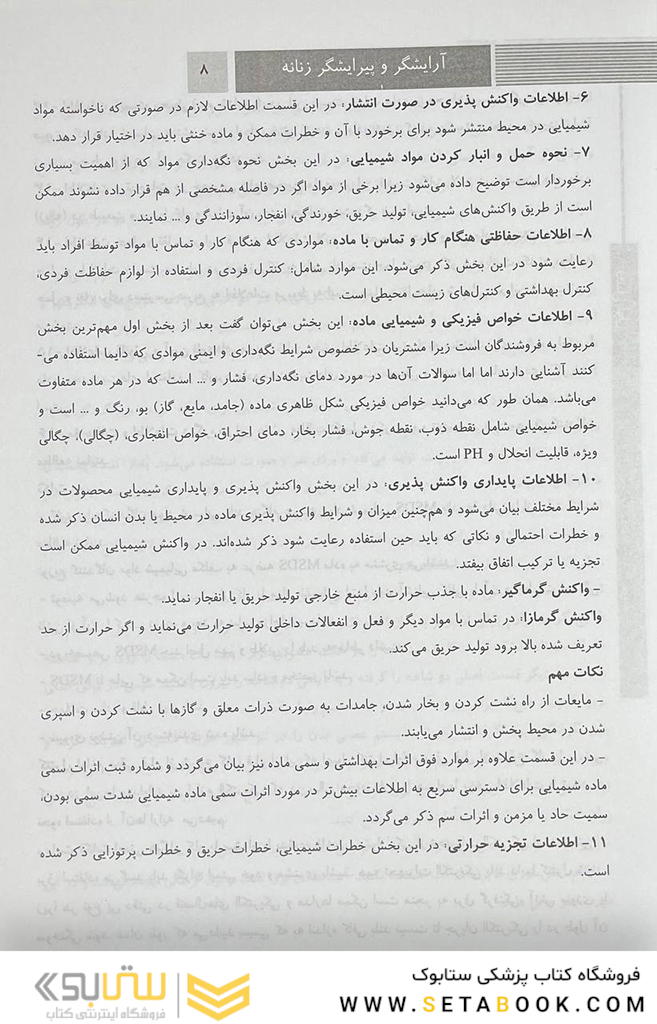 آرایشگر و پیرایشگر زنانه
۸
۶- اطلاعات واکنش پذیری در صورت انتشار: در این قسمت اطلاعات لازم در صورتی که ناخواسته مواد
شیمیایی در محیط منتشر شود برای برخورد با آن و خطرات ممکن و ماده خنثی باید در اختیار قرار دهد.
۷- نحوه حمل و انبار کردن مواد شیمیایی: در این بخش نحوه نگه‌داری مواد که از اهمیت بسیاری
برخوردار است توضیح داده می‌شود زیرا برخی از مواد اگر در فاصله مشخصی از هم قرار داده نشوند ممکن
است از طریق واکنش‌های شیمیایی، تولید حریق، خورندگی، انفجار، سوزانندگی و ... نمایند.
۸- اطلاعات حفاظتی هنگام کار و تماس با ماده: مواردی که هنگام کار و تماس با مواد توسط افراد باید
رعایت شود در این بخش ذکر می‌شود. این موارد شامل: کنترل فردی و استفاده از لوازم حفاظت فردی،
کنترل بهداشتی و کنترل‌های زیست محیطی است.
۹- اطلاعات خواص فیزیکی و شیمیایی ماده: این بخش می‌توان گفت بعد از بخش اول مهم‌ترین بخش
مربوط به فروشندگان است زیرا مشتریان در خصوص شرایط نگه‌داری و ایمنی موادی که دایما استفاده می-
کنند آشنایی دارند اما اما سوالات آن‌ها در مورد دمای نگه‌داری، فشار و ... است که در هر ماده متفاوت
می‌باشد. همان طور که می‌دانید خواص فیزیکی شکل ظاهری ماده (جامد، مایع، گاز) بو، رنگ و ... است و
خواص شیمیایی شامل نقطه ذوب، نقطه جوش، فشار بخار، دمای احتراق، خواص انفجاری، (چگالی)، چگالی
ویژه، قابلیت انحلال و PH است.
۱۰- اطلاعات پایداری واکنش پذیری: در این بخش واکنش پذیری و پایداری شیمیایی محصولات در
شرایط مختلف بیان می‌شود و هم‌چنین میزان و شرایط واکنش پذیری ماده در محیط یا بدن انسان ذکر شده
و خطرات احتمالی و نکاتی که باید حین استفاده رعایت شود ذکر شده‌اند. در واکنش شیمیایی ممکن است
تجزیه یا ترکیب اتفاق بیفتد.
- واکنش گرماگیر: ماده با جذب حرارت از منبع خارجی تولید حریق یا انفجار نماید.
واکنش گرمازا: در تماس با مواد دیگر و فعل و انفعالات داخلی تولید حرارت می‌نماید و اگر حرارت از حد
تعریف شده بالا برود تولید حریق می‌کند.
نکات مهم
- مایعات از راه نشت کردن و بخار شدن، جامدات به صورت ذرات معلق و گازها با نشت کردن و اسپری
شدن در محیط پخش و انتشار می‌یابند.
- در این قسمت علاوه بر موارد فوق اثرات بهداشتی و سمی ماده نیز بیان می‌گردد و شماره ثبت اثرات سمی
ماده شیمیایی برای دسترسی سریع به اطلاعات بیش‌تر در مورد اثرات سمی ماده شیمیایی شدت سمی بودن،
سمیت حاد یا مزمن و اثرات سم ذکر می‌گردد.
۱۱- اطلاعات تجزیه حرارتی: در این بخش خطرات شیمیایی، خطرات حریق و خطرات پرتوزایی ذکر شده
است.
فروشگاه کتاب پزشکی ستابوک
WWW.SETABOOK.COM
ستابوک
فروشگاه اینترنتی کتاب